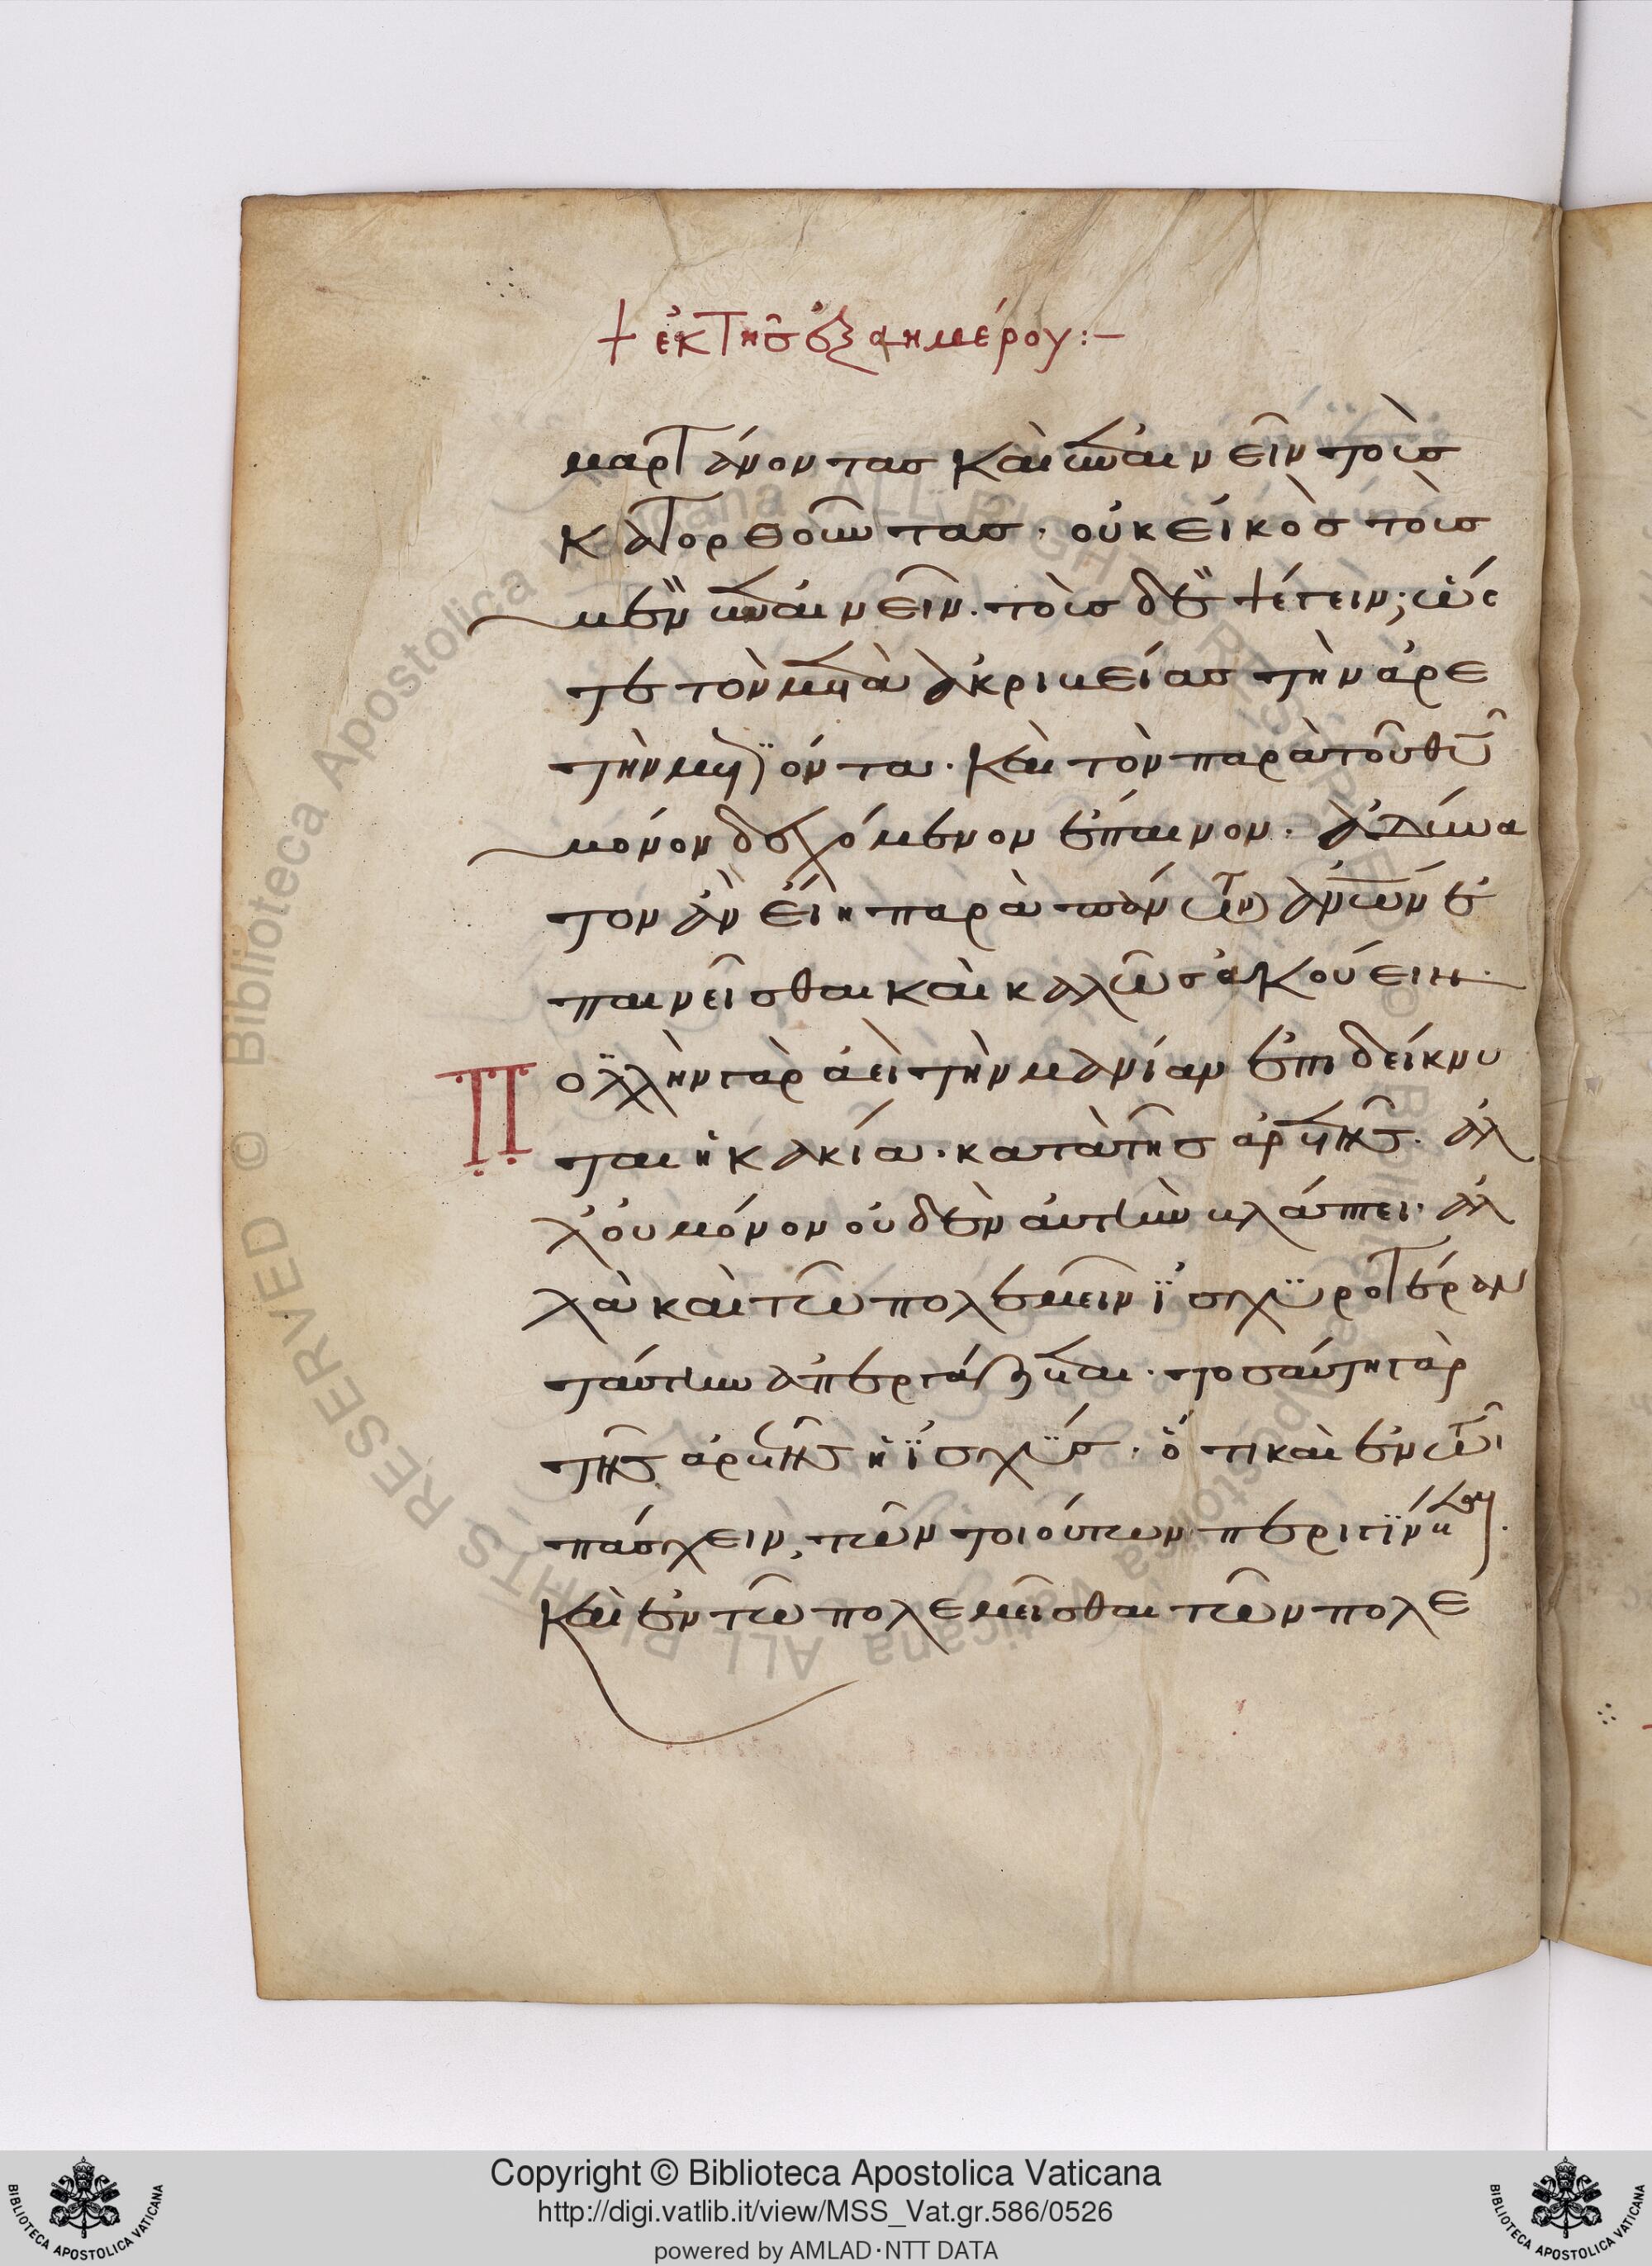 + ἐκ τῆς ἑξαημέρου :–
μαρτάνοντας καὶ ἐπαινεῖν τοὺς
κατορθοῦντας· οὐκ εἰκὸς τοὺς
μὲν ἐπαινεῖν. τοὺς δὲ ψέγειν; ὥσ
τε τὸν μετὰ ἀκριβείας τὴν ἀρε
τὴν μετϊόντα. καὶ τὸν παρὰ τοῦ θῦ
μόνον δεχόμενον ἔπαινον. ἀδύνα
τον ἂν εἴη παρὰ πάντων ἀνων ἐ
παινεῖσθαι καὶ καλῶς ἀκούειν·
Πολλὴν γὰρ ἀεὶ τὴν μανίαν ἐπιδείκνυ
ται ἡ κακία. κατὰ τῆς ἀρετῆς. ἀλ
λ' οὐ μόνον οὐδὲν αὐτὴν βλάπτει. ἀλ
λὰ καὶ τῶ πολεμεῖν ϊσχϋροτέραν
ταύτην ἀπεργάζεται. τοσαύτη γὰρ
τῆς ἀρετῆς ἡ ϊσχϋς. ὅτι καὶ ἐν τῶι
πάσχειν, τῶν ποιούντων περιγίνεται.
καὶ ἐν τῶ πολεμεῖσθαι τῶν πολε
Copyright © Biblioteca Apostolica Vaticana
http://digi.vatlib.it/view/MSS_Vat.gr.586/0526
powered by AMLAD·NTT DATA
BIBLIOTECA APOSTOLICA VATICANA
BIBLIOTECA APOSTOLICA VATICANA